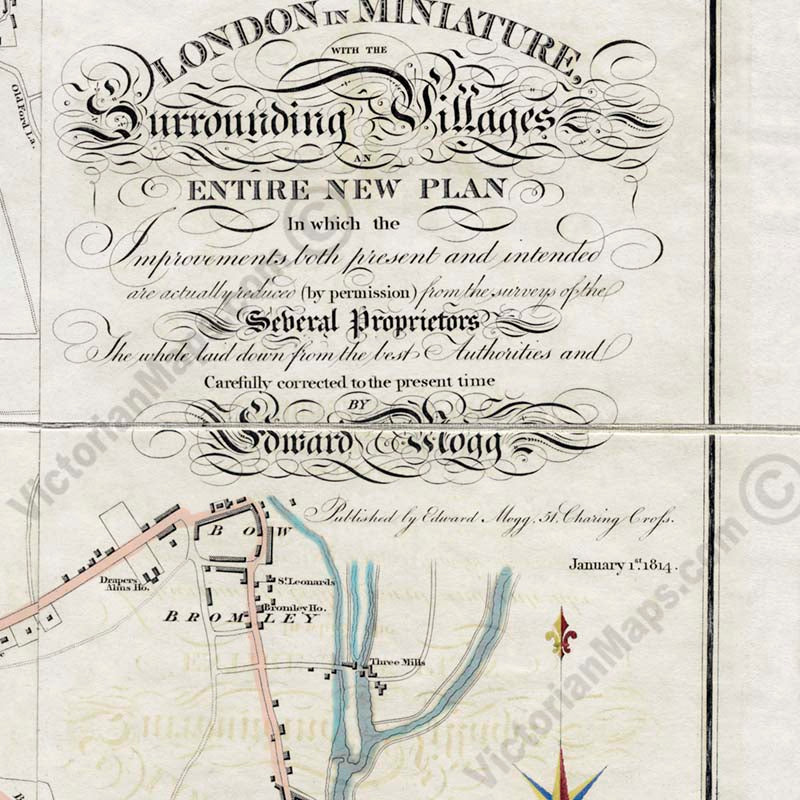 LONDON IN MINIATURE,
WITH THE
Surrounding Villages
AN
ENTIRE NEW PLAN
In which the
Improvements both present and intended
are actually reduced (by permission) from the surveys of the
Several Proprietors
The whole laid down from the best Authorities and
Carefully corrected to the present time
BY
Edward Mogg
Published by Edward Mogg, 51, Charing Croſs.
January 1st. 1814.
Old Ford La.
BOW
Drapers
Alms Ho.
St. Leonards
Bromley Ho.
BROMLEY
Three Mills
VictorianMaps.com ©
VictorianMaps.com ©